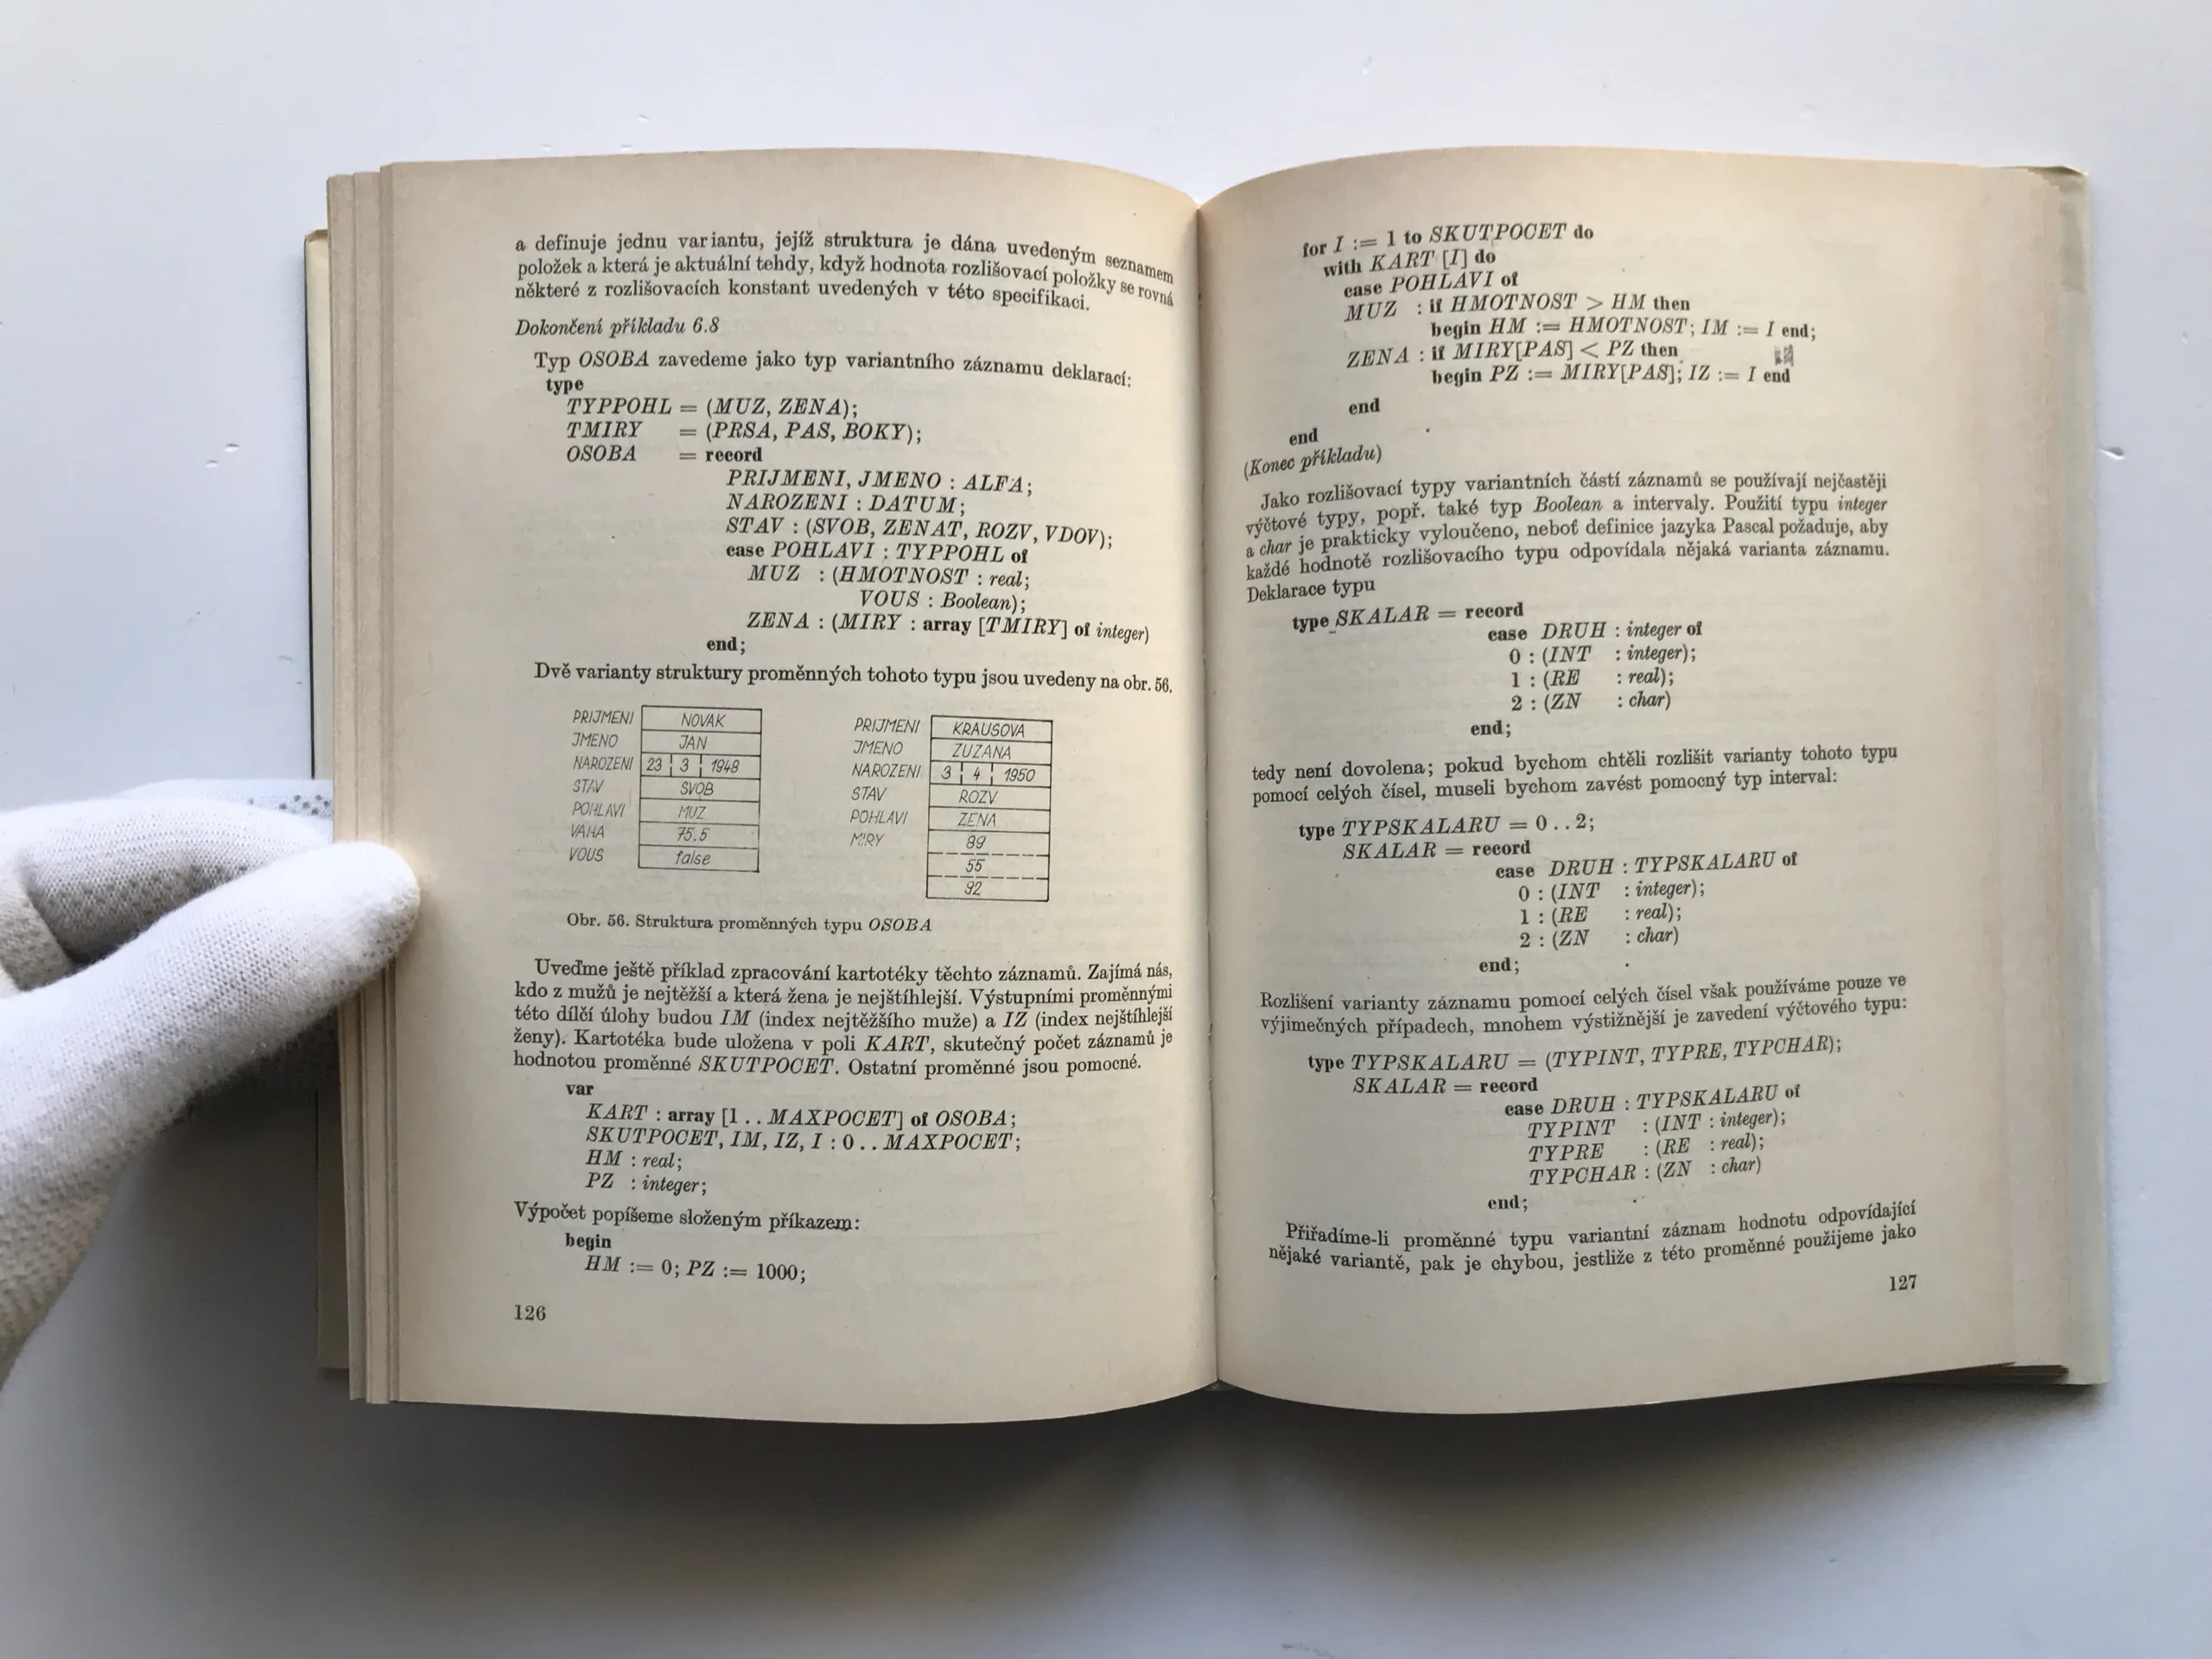 a definuje jednu variantu, jejíž struktura je dána uvedeným seznamem
položek a která je aktuální tehdy, když hodnota rozlišovací položky se rovná
některé z rozlišovacích konstant uvedených v této specifikaci.
Dokončení příkladu 6.8
Typ OSOBA zavedeme jako typ variantního záznamu deklarací:
type
TYPPOHL = (MUZ, ZENA);
TMIRY = (PRSA, PAS, BOKY);
OSOBA = record
PRIJMENI, JMENO : ALFA;
NAROZENI : DATUM;
STAV : (SVOB, ZENAT, ROZV, VDOV);
case POHLAVI : TYPPOHL of
MUZ : (HMOTNOST : real;
VOUS : Boolean);
ZENA : (MIRY : array [TMIRY] of integer)
end;
Dvě varianty struktury proměnných tohoto typu jsou uvedeny na obr. 56.
PRIJMENI NOVAK
JMENO JAN
NAROZENI 23 3 1948
STAV SVOB
POHLAVI MUZ
VAHA 75.5
VOUS false
PRIJMENI KRAUSOVA
JMENO ZUZANA
NAROZENI 3 4 1950
STAV ROZV
POHLAVI ZENA
MIRY 89
55
92
Obr. 56. Struktura proměnných typu OSOBA
Uveďme ještě příklad zpracování kartotéky těchto záznamů. Zajímá nás,
kdo z mužů je nejtěžší a která žena je nejštíhlejší. Výstupními proměnnými
této dílčí úlohy budou IM (index nejtěžšího muže) a IZ (index nejštíhlejší
ženy). Kartotéka bude uložena v poli KART, skutečný počet záznamů je
hodnotou proměnné SKUTPOCET. Ostatní proměnné jsou pomocné.
var
KART : array [1 . . MAXPOCET] of OSOBA;
SKUTPOCET, IM, IZ, I : 0 . . MAXPOCET;
HM : real;
PZ : integer;
Výpočet popíšeme složeným příkazem:
begin
HM := 0; PZ := 1000;
126
for I := 1 to SKUTPOCET do
with KART [I] do
case POHLAVI of
MUZ : if HMOTNOST > HM then
begin HM := HMOTNOST; IM := I end;
ZENA : if MIRY[PAS] < PZ then
begin PZ := MIRY[PAS]; IZ := I end
end
end
(Konec příkladu)
Jako rozlišovací typy variantních částí záznamů se používají nejčastěji
výčtové typy, popř. také typ Boolean a intervaly. Použití typu integer
a char je prakticky vyloučeno, neboť definice jazyka Pascal požaduje, aby
každé hodnotě rozlišovacího typu odpovídala nějaká varianta záznamu.
Deklarace typu
type SKALAR = record
case DRUH : integer of
0 : (INT : integer);
1 : (RE : real);
2 : (ZN : char)
end;
tedy není dovolena; pokud bychom chtěli rozlišit varianty tohoto typu
pomocí celých čísel, museli bychom zavést pomocný typ interval:
type TYPSKALARU = 0 . . 2;
SKALAR = record
case DRUH : TYPSKALARU of
0 : (INT : integer);
1 : (RE : real);
2 : (ZN : char)
end;
Rozlišení varianty záznamu pomocí celých čísel však používáme pouze ve
výjimečných případech, mnohem výstižnější je zavedení výčtového typu:
type TYPSKALARU = (TYPINT, TYPRE, TYPCHAR);
SKALAR = record
case DRUH : TYPSKALARU of
TYPINT : (INT : integer);
TYPRE : (RE : real);
TYPCHAR : (ZN : char)
end;
Přiřadíme-li proměnné typu variantní záznam hodnotu odpovídající
nějaké variantě, pak je chybou, jestliže z této proměnné použijeme jako
127